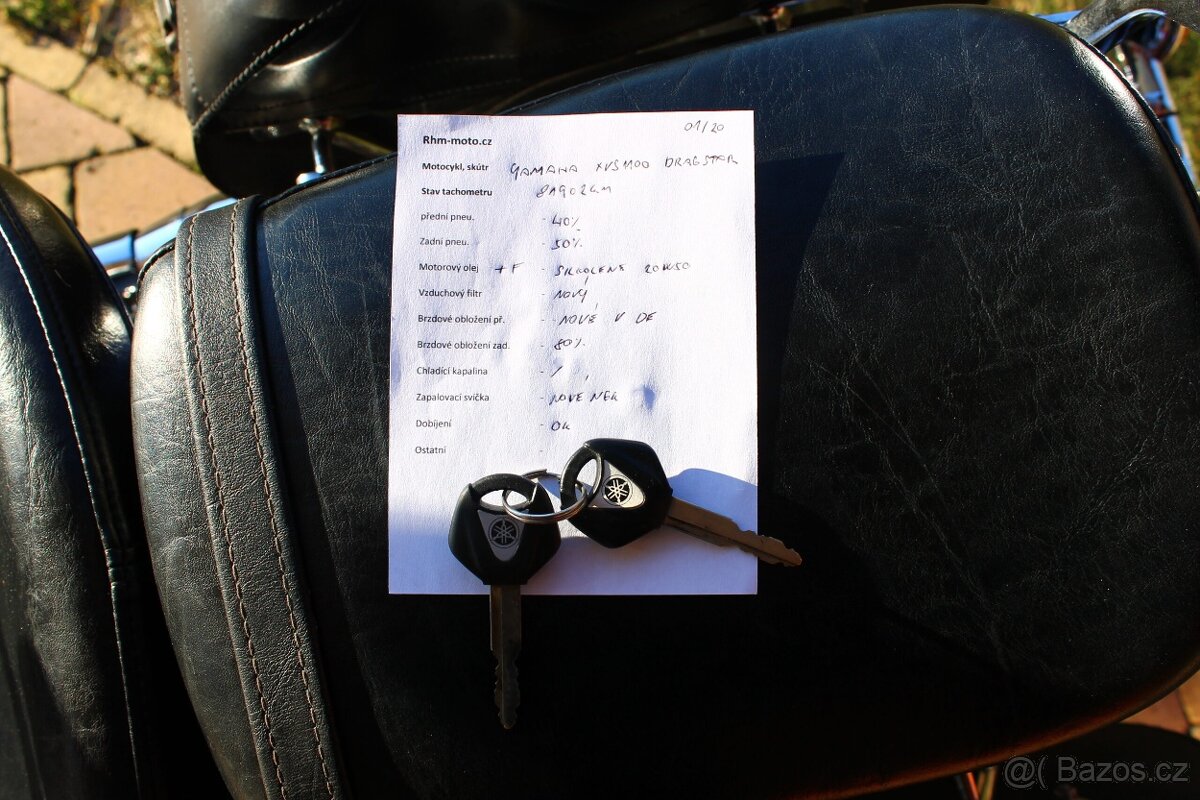 01/20
Rhm-moto.cz
Motocykl, skútr YAMAHA XVS1100 DRAGSTAR
Stav tachometru 81902KM
přední pneu. - 40%
Zadní pneu. - 50%
Motorový olej +F - SILKOLENE 20W50
Vzduchový filtr - NOVÝ
Brzdové obložení př. - NOVÉ V DE
Brzdové obložení zad. - 80%
Chladící kapalina - /
Zapalovací svíčka - NOVÉ NGK
Dobíjení - OK
Ostatní -
@( Bazos.cz